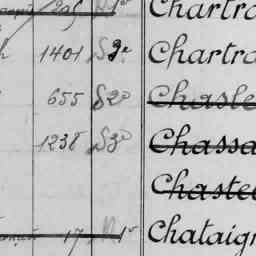 Chartr
1401 S 2e Chartro
655 S 2o Chasle
1238 S 3o Chassa
Chaste
17 1r Chataign